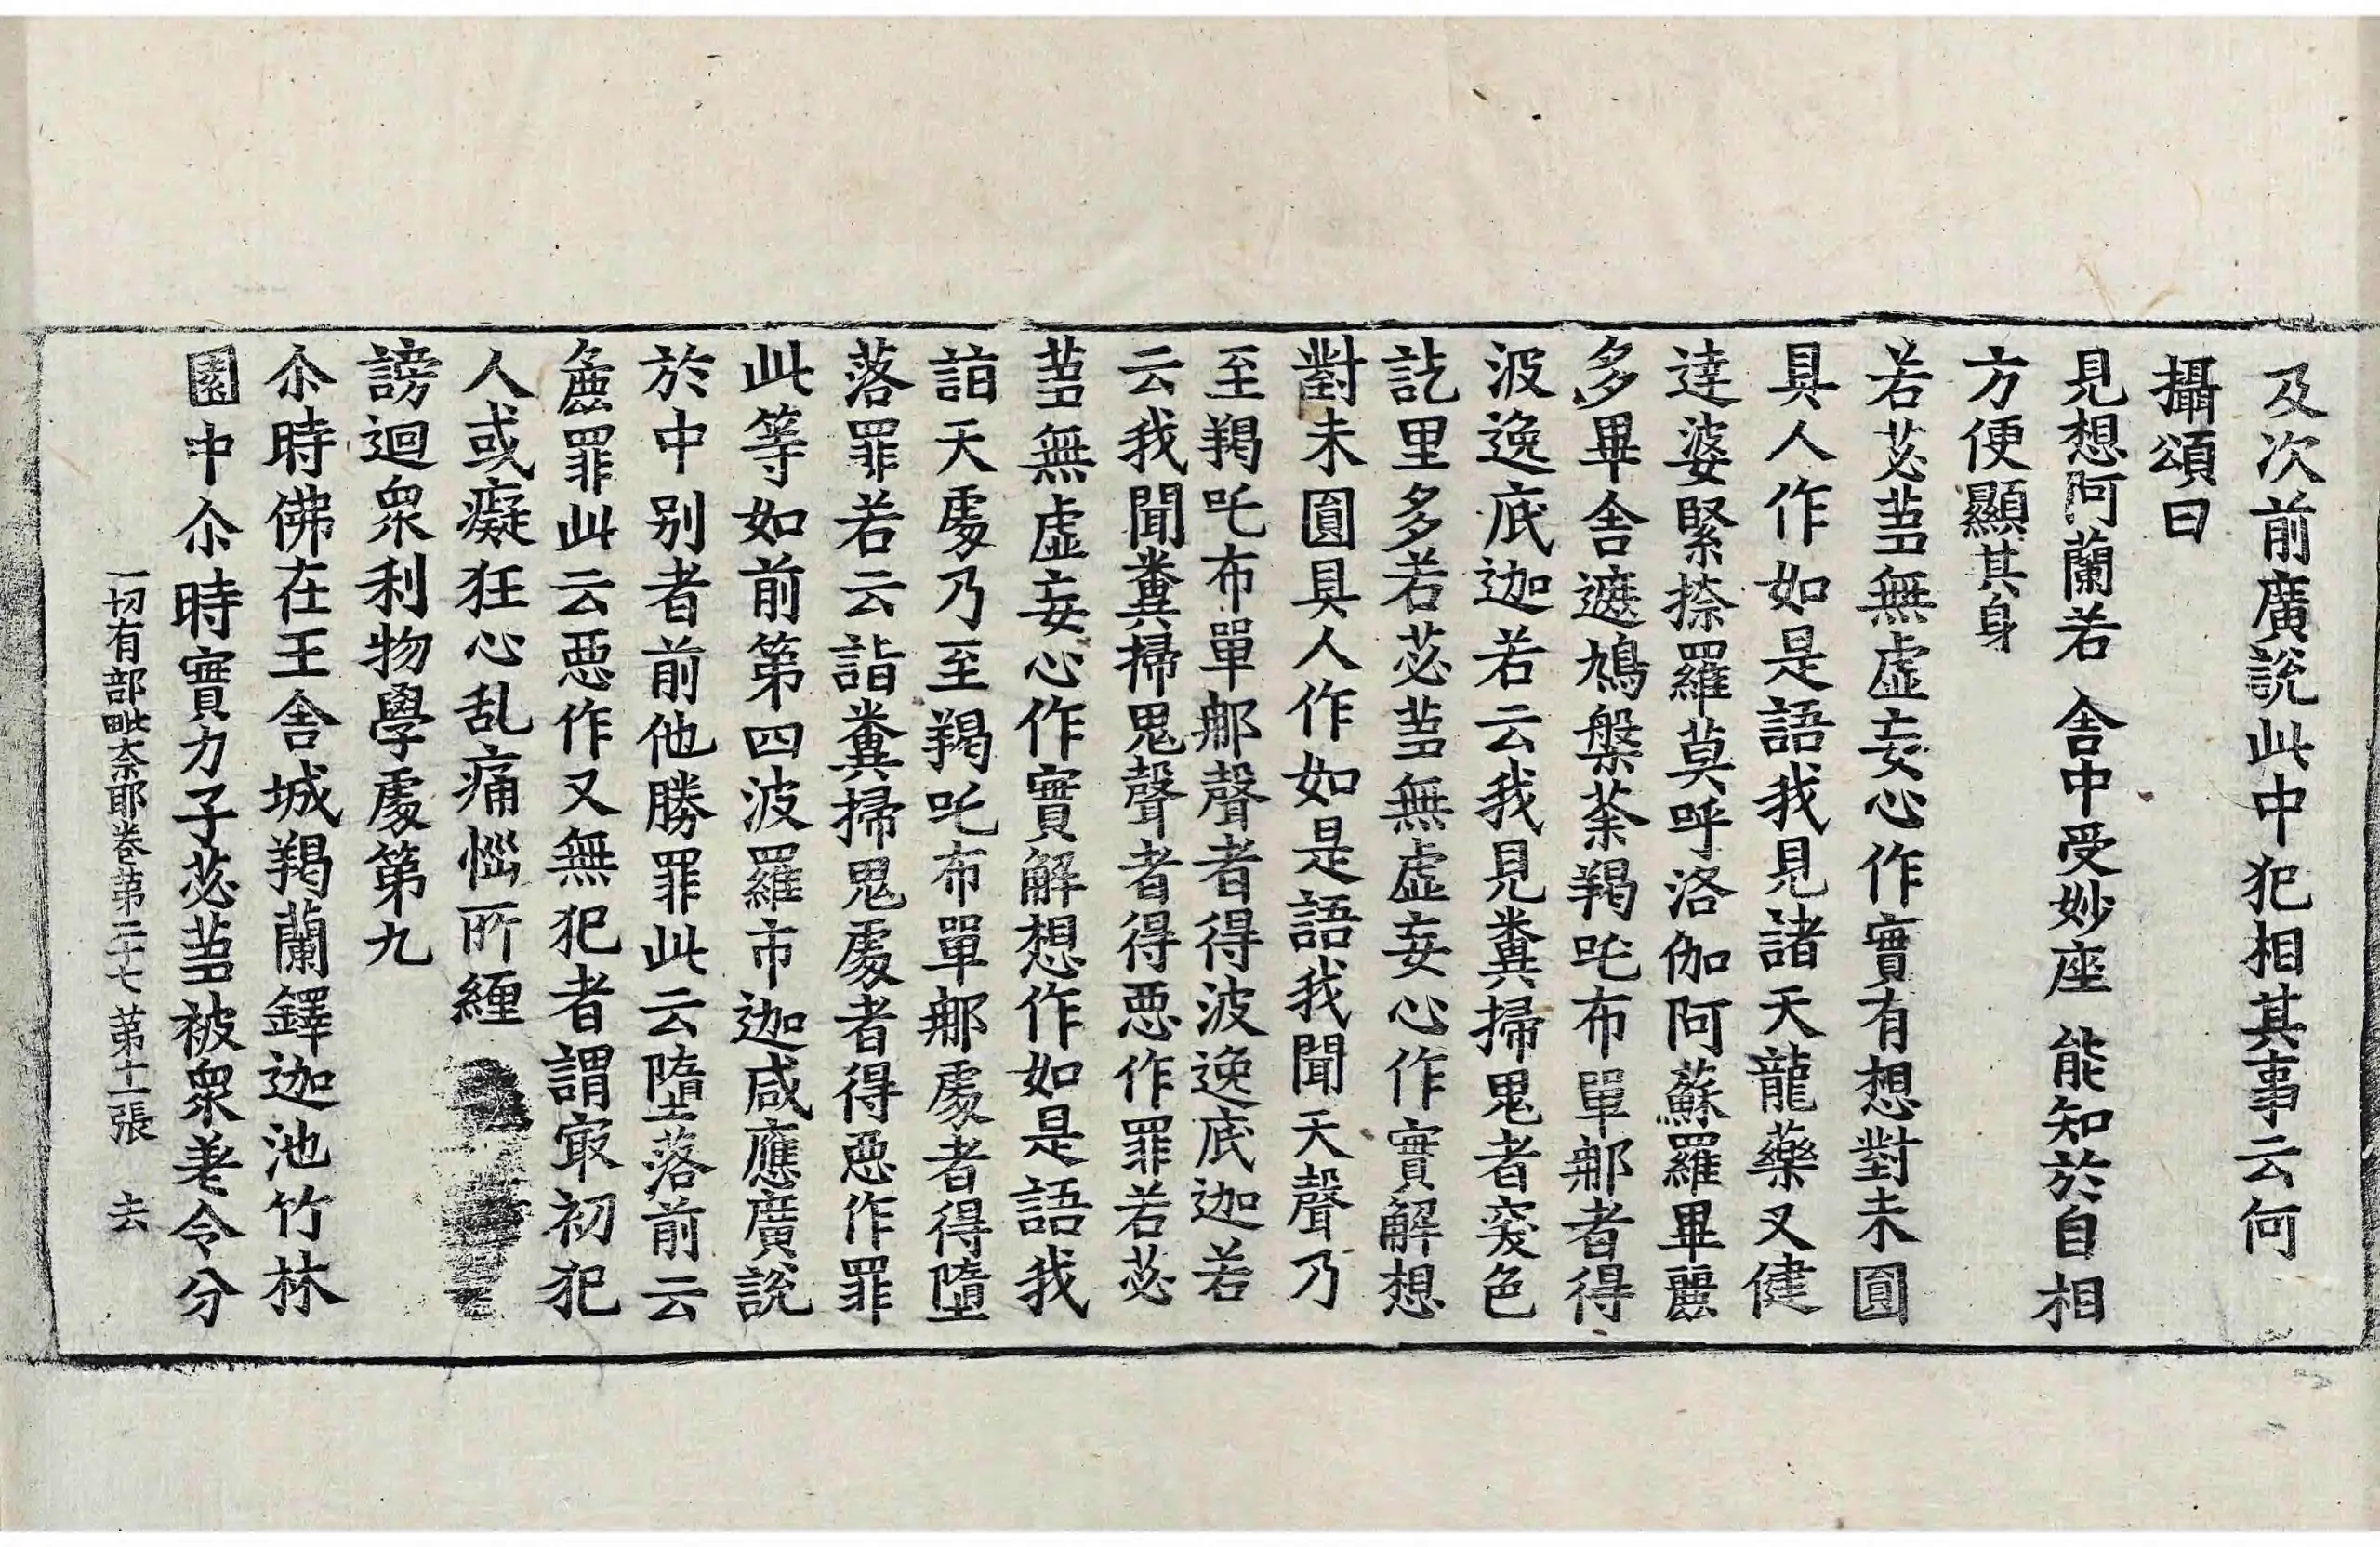 及次前廣說此中犯相其事云何
攝頌曰
見想阿蘭若 舍中受妙座 能知於自相
方便顯其身
若苾芻無虛妄心作實有想對未圓
具人作如是語我見諸天龍藥叉健
達婆緊捺羅莫呼洛伽阿蘇羅畢麗
多畢舍遮鳩槃荼羯吒布單那者得
波逸底迦若云我見糞掃鬼者突色
訖里多若苾芻無虛妄心作實解想
對未圓具人作如是語我聞天聲乃
至羯吒布單那聲者得波逸底迦若
云我聞糞掃鬼聲者得惡作罪若苾
芻無虛妄心作實解想作如是語我
詣天處乃至羯吒布單那處者得墮
落罪若云詣糞掃鬼處者得惡作罪
此等如前第四波羅市迦咸應廣說
於中別者前他勝罪此云墮落前云
麁罪此云惡作又無犯者謂㝡初犯
人或癡狂心乱痛惱所纏
謗迴衆利物學處第九
尒時佛在王舍城羯蘭鐸迦池竹林
園中尒時實力子苾芻被衆差令分
一切有部毗奈耶卷第二十七 第十一張 去